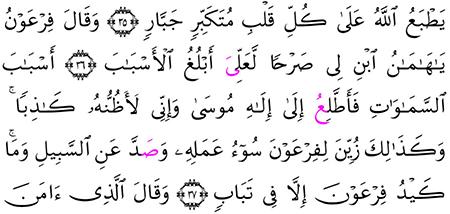 يَطْبَعُ ٱللَّهُ عَلَىٰ كُلِّ قَلْبِ مُتَكَبِّرٍ جَبَّارٍ ۝٣٥ وَقَالَ فِرْعَوْنُ
يَٰهَٰمَٰنُ ٱبْنِ لِى صَرْحًا لَّعَلِّىَ أَبْلُغُ ٱلْأَسْبَٰبَ ۝٣٦ أَسْبَٰبَ
ٱلسَّمَٰوَٰتِ فَأَطَّلِعُ إِلَىٰٓ إِلَٰهِ مُوسَىٰ وَإِنِّى لَأَظُنُّهُۥ كَٰذِبًا ۚ
وَكَذَٰلِكَ زُيِّنَ لِفِرْعَوْنَ سُوٓءُ عَمَلِهِۦ وَصَدَّ عَنِ ٱلسَّبِيلِ ۚ وَمَا
كَيْدُ فِرْعَوْنَ إِلَّا فِى تَبَابٍ ۝٣٧ وَقَالَ ٱلَّذِىٓ ءَامَنَ